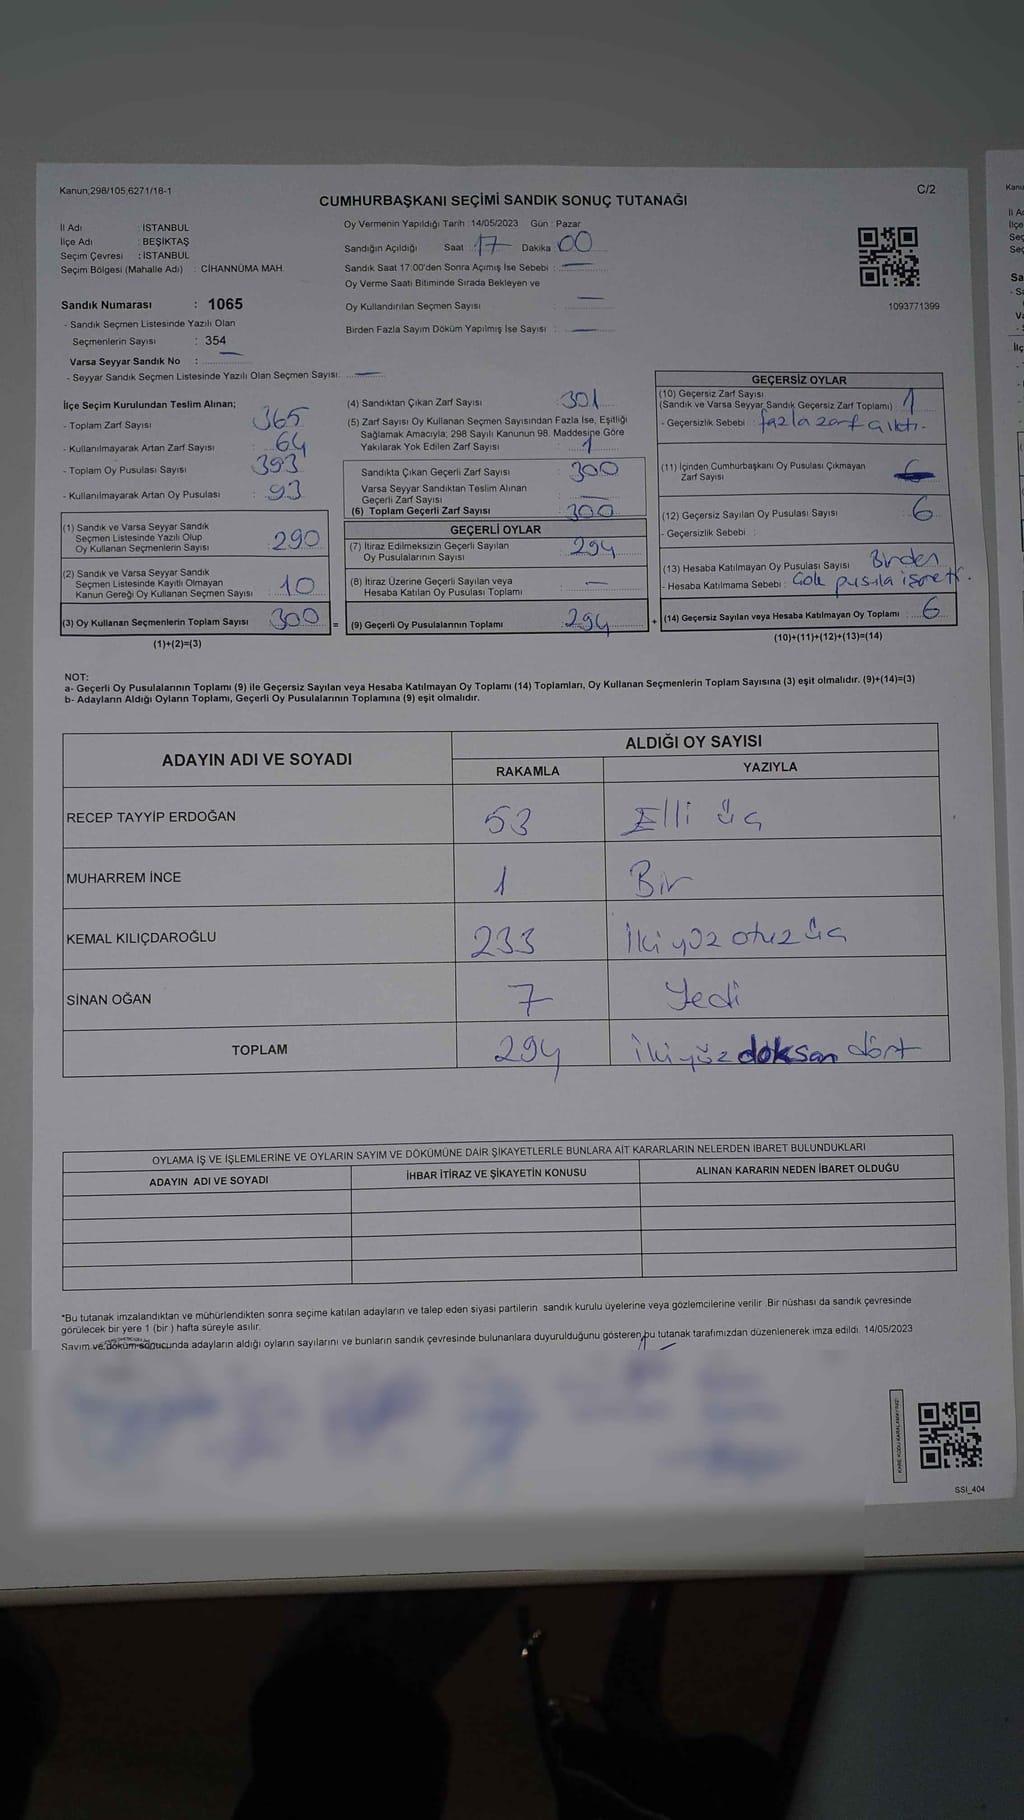 Kanun,298/105,6271/18-1
C/2
CUMHURBAŞKANI SEÇİMİ SANDIK SONUÇ TUTANAĞI
İl Adı : İSTANBUL
İlçe Adı : BEŞİKTAŞ
Seçim Çevresi : İSTANBUL
Seçim Bölgesi (Mahalle Adı) : CİHANNÜMA MAH.
Sandık Numarası : 1065
- Sandık Seçmen Listesinde Yazılı Olan
Seçmenlerin Sayısı : 354
Varsa Seyyar Sandık No :
- Seyyar Sandık Seçmen Listesinde Yazılı Olan Seçmen Sayısı:
Oy Vermenin Yapıldığı Tarih : 14/05/2023 Gün : Pazar
Sandığın Açıldığı Saat : 17 Dakika : 00
Sandık Saat 17:00'den Sonra Açımış İse Sebebi :
Oy Verme Saati Bitiminde Sırada Bekleyen ve
Oy Kullandırılan Seçmen Sayısı
Birden Fazla Sayım Döküm Yapılmış İse Sayısı :
1093771399
İlçe Seçim Kurulundan Teslim Alınan;
- Toplam Zarf Sayısı 365
- Kullanılmayarak Artan Zarf Sayısı : 64
- Toplam Oy Pusulası Sayısı : 393
- Kullanılmayarak Artan Oy Pusulası : 93
(1) Sandık ve Varsa Seyyar Sandık
Seçmen Listesinde Yazılı Olup
Oy Kullanan Seçmenlerin Sayısı : 290
(2) Sandık ve Varsa Seyyar Sandık
Seçmen Listesinde Kayıtlı Olmayan
Kanun Gereği Oy Kullanan Seçmen Sayısı : 10
(3) Oy Kullanan Seçmenlerin Toplam Sayısı 300 =
(1)+(2)=(3)
(4) Sandıktan Çıkan Zarf Sayısı : 301
(5) Zarf Sayısı Oy Kullanan Seçmen Sayısından Fazla İse, Eşitliği
Sağlamak Amacıyla; 298 Sayılı Kanunun 98. Maddesine Göre
Yakılarak Yok Edilen Zarf Sayısı : 1
Sandıkta Çıkan Geçerli Zarf Sayısı : 300
Varsa Seyyar Sandıktan Teslim Alınan
Geçerli Zarf Sayısı
(6) Toplam Geçerli Zarf Sayısı : 300
GEÇERLİ OYLAR
(7) İtiraz Edilmeksizin Geçerli Sayılan 294
Oy Pusulalarının Sayısı
(8) İtiraz Üzerine Geçerli Sayılan veya
Hesaba Katılan Oy Pusulası Toplamı
(9) Geçerli Oy Pusulalarının Toplamı 294 +
GEÇERSİZ OYLAR
(10) Geçersiz Zarf Sayısı 1
(Sandık ve Varsa Seyyar Sandık Geçersiz Zarf Toplamı)
- Geçersizlik Sebebi : fazla zarf çıktı.
(11) İçinden Cumhurbaşkanı Oy Pusulası Çıkmayan
Zarf Sayısı
(12) Geçersiz Sayılan Oy Pusulası Sayısı : 6
- Geçersizlik Sebebi :
(13) Hesaba Katılmayan Oy Pusulası Sayısı Birden
- Hesaba Katılmama Sebebi : çok pusula
(14) Geçersiz Sayılan veya Hesaba Katılmayan Oy Toplamı : 6
(10)+(11)+(12)+(13)=(14)
NOT:
a- Geçerli Oy Pusulalarının Toplamı (9) ile Geçersiz Sayılan veya Hesaba Katılmayan Oy Toplamı (14) Toplamları, Oy Kullanan Seçmenlerin Toplam Sayısına (3) eşit olmalıdır. (9)+(14)=(3)
b- Adayların Aldığı Oyların Toplamı, Geçerli Oy Pusulalarının Toplamına (9) eşit olmalıdır.
ADAYIN ADI VE SOYADI
ALDIĞI OY SAYISI
RAKAMLA YAZIYLA
RECEP TAYYİP ERDOĞAN 53 Elli üç
MUHARREM İNCE 1 Bir
KEMAL KILIÇDAROĞLU 233 İki yüz otuz üç
SİNAN OĞAN 7 Yedi
TOPLAM 294 İki yüz doksan dört
OYLAMA İŞ VE İŞLEMLERİNE VE OYLARIN SAYIM VE DÖKÜMÜNE DAİR ŞİKAYETLERLE BUNLARA AİT KARARLARIN NELERDEN İBARET BULUNDUKLARI
ADAYIN ADI VE SOYADI İHBAR İTİRAZ VE ŞİKAYETİN KONUSU ALINAN KARARIN NEDEN İBARET OLDUĞU
*Bu tutanak imzalandıktan ve mühürlendikten sonra seçime katılan adayların ve talep eden siyasi partilerin sandık kurulu üyelerine veya gözlemcilerine verilir. Bir nüshası da sandık çevresinde
görülecek bir yere 1 (bir) hafta süreyle asılır.
Sayım ve döküm sonucunda adayların aldığı oyların sayılarını ve bunların sandık çevresinde bulunanlara duyurulduğunu gösteren bu tutanak tarafımızdan düzenlenerek imza edildi. 14/05/2023
SSI_404